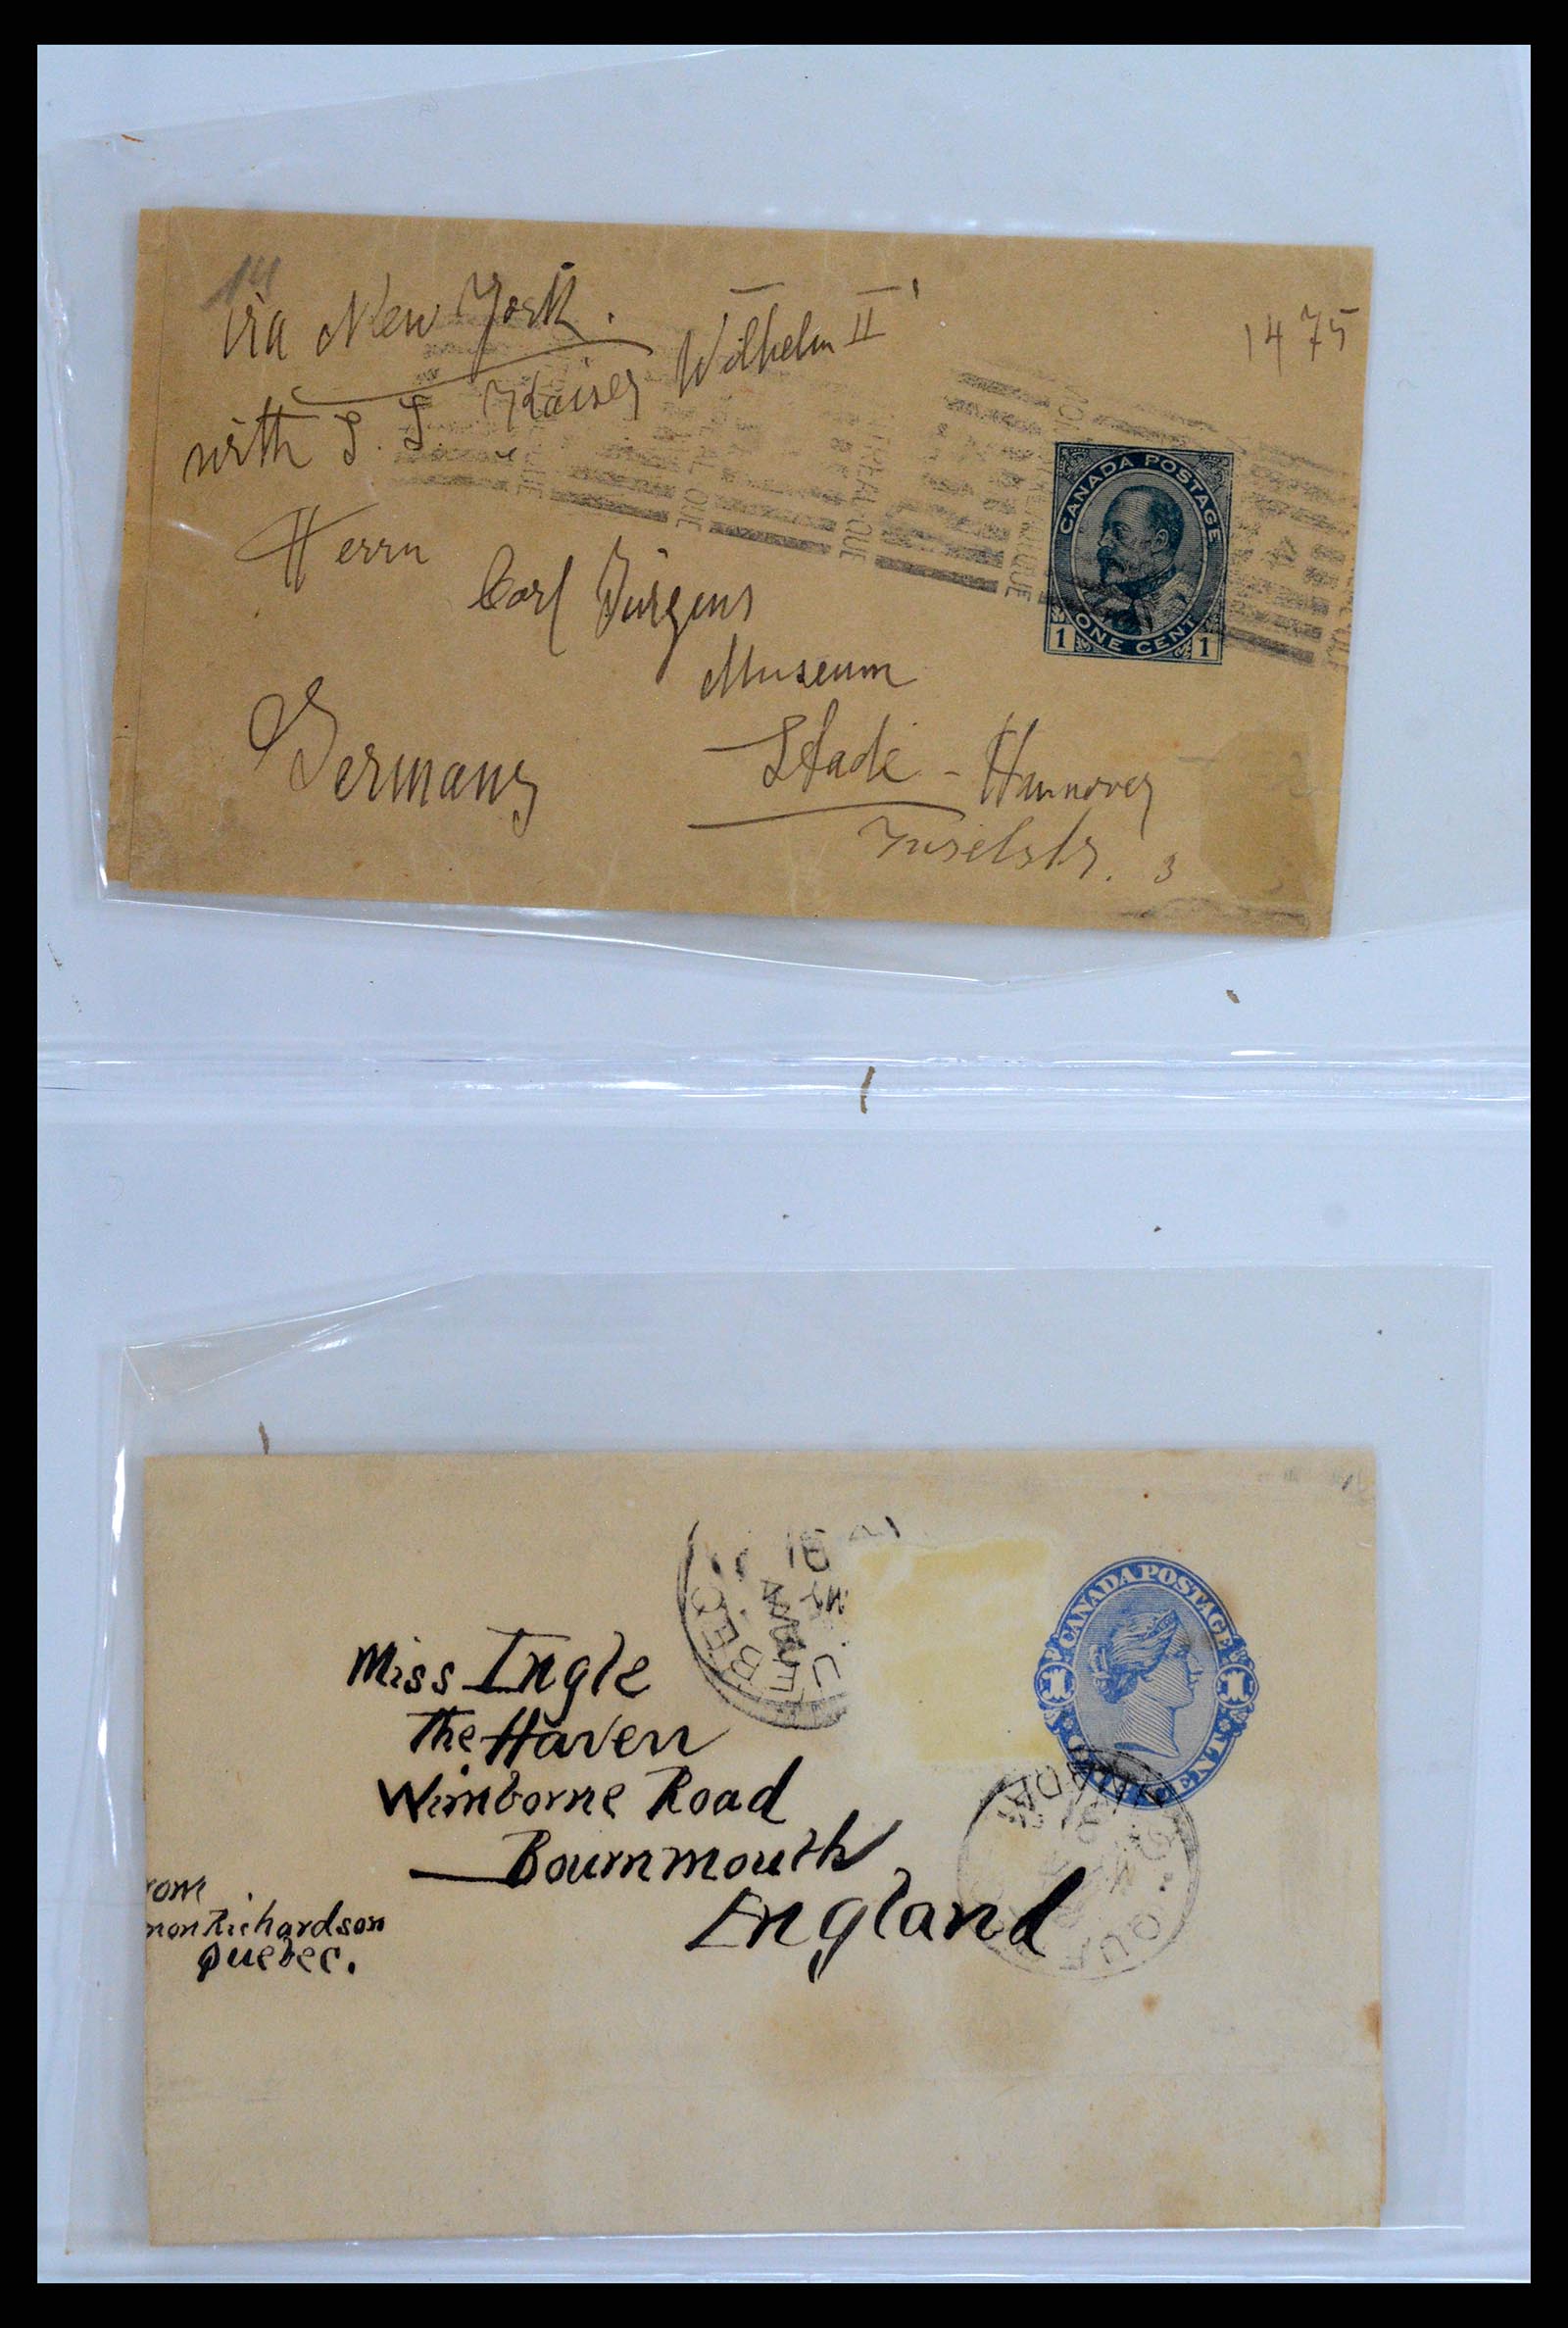 14
via New York.
with S. S. Kaiser Wilhelm II
1475
MONTREAL QUE
CANADA POSTAGE
1 ONE CENT 1
Herrn
Carl Jürgens
Museum
Stade - Hannover
Inselstr. 3
Germany
CANADA POSTAGE
1 1
ONE CENT
QUEBEC
91
Miss Ingle
The Haven
Wimborne Road
Bournmouth
England
rom
mon Richardson
Quebec.
CANADA
QUE